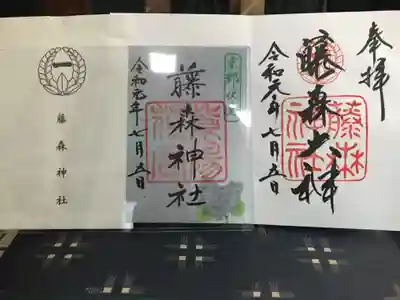 奉拝
藤森大神
令和元年七月五日
藤森神社
京都伏見
藤森神社
令和元年七月五日
一
藤森神社